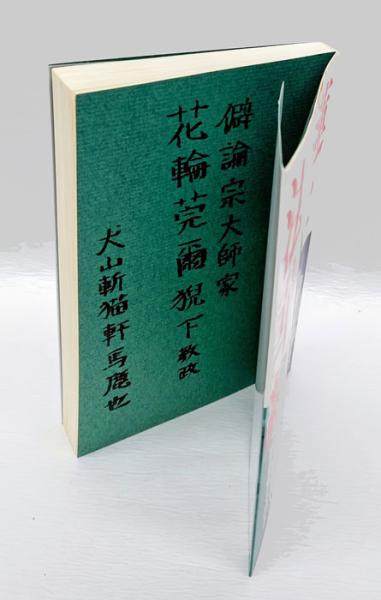 僻論宗大師家
花輪莞爾猊下教政
犬山斬猫軒馬鹿也